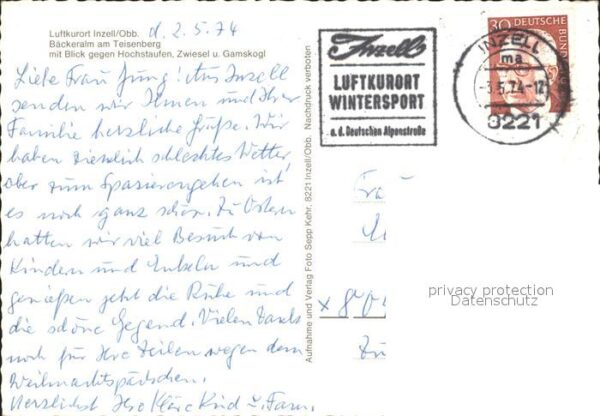 Luftkurort Inzell/Obb.
d. 2.5.74
Bäckeralm am Teisenberg
mit Blick gegen Hochstaufen, Zwiesel u. Gamskogl
Liebe Frau Jung! Aus Inzell
senden wir Ihnen und Ihrer
Familie herzliche Grüße. Wir
haben ziemlich schlechtes Wetter,
aber zum Spazierengehen ist
es noch ganz schön. Zu Ostern
hatten wir viel Besuch von
Kindern und Enkeln und
genießen jetzt die Ruhe und
die schöne Gegend. Vielen Dank
noch für Ihre Zeilen wegen dem
Weihnachtspäckchen.
Herzlichst Ihre Kläre Kind u. Fam.
Aufnahme und Verlag Foto Sepp Kehr, 8221 Inzell/Obb. Nachdruck verboten
Inzell
LUFTKURORT
WINTERSPORT
a. d. Deutschen Alpenstraße
INZELL
ma
-3.5.74-17
8221
30 DEUTSCHE BUNDESPOST
Frau
x 800
privacy protection
Datenschutz